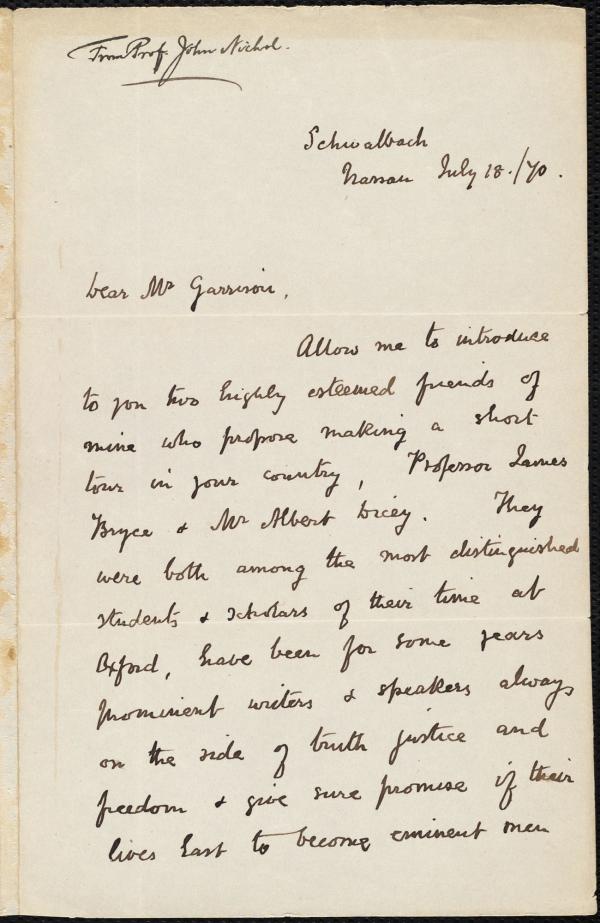 From Prof. John Nichol.
Schwalbach
Nassau July 18./70.
Dear Mr Garrison,
Allow me to introduce
to you two highly esteemed friends of
mine who propose making a short
tour in your country, Professor James
Bryce & Mr Albert Dicey. They
were both among the most distinguished
students & scholars of their time at
Oxford, have been for some years
prominent writers & speakers always
on the side of truth justice and
freedom & give sure promise if their
lives last to become eminent men